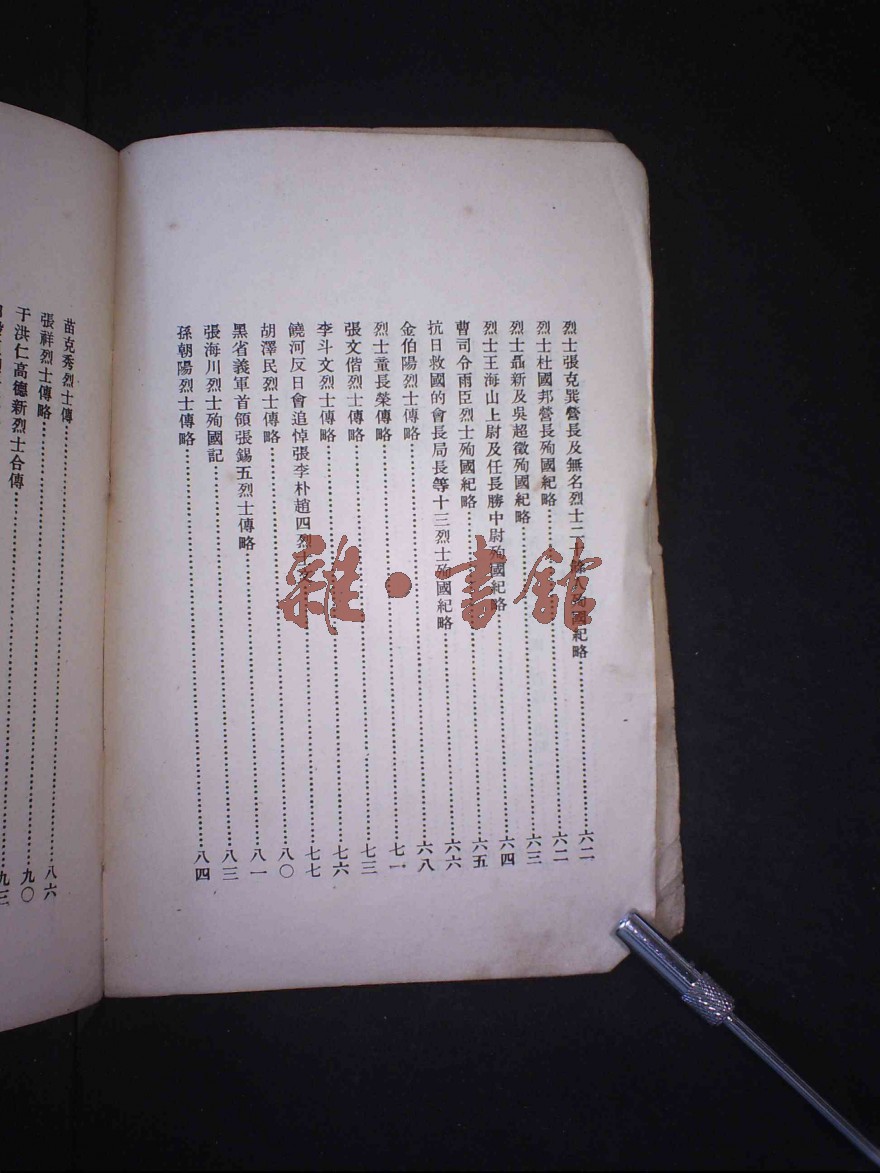 烈士張克巽營長及無名烈士二十餘人殉國紀略……六二
烈士杜國邦營長殉國紀略……六二
烈士聶新及吳超徵殉國紀略……六三
烈士王海山上尉及任長勝中尉殉國紀略……六四
曹司令雨臣烈士殉國紀略……六五
抗日救國的會長局長等十三烈士殉國紀略……六六
金伯陽烈士傳略……六八
烈士董長榮傳略……七一
張文偕烈士傳略……七三
李斗文烈士傳略……七六
饒河反日會追悼張李朴趙四烈士文……七七
胡澤民烈士傳略……八〇
黑省義軍首領張錫五烈士傳略……八一
張海川烈士殉國記……八三
孫朝陽烈士傳略……八四
苗克秀烈士傳……八六
張祥烈士傳略……九〇
于洪仁高德新烈士合傳……九三
雜·書館